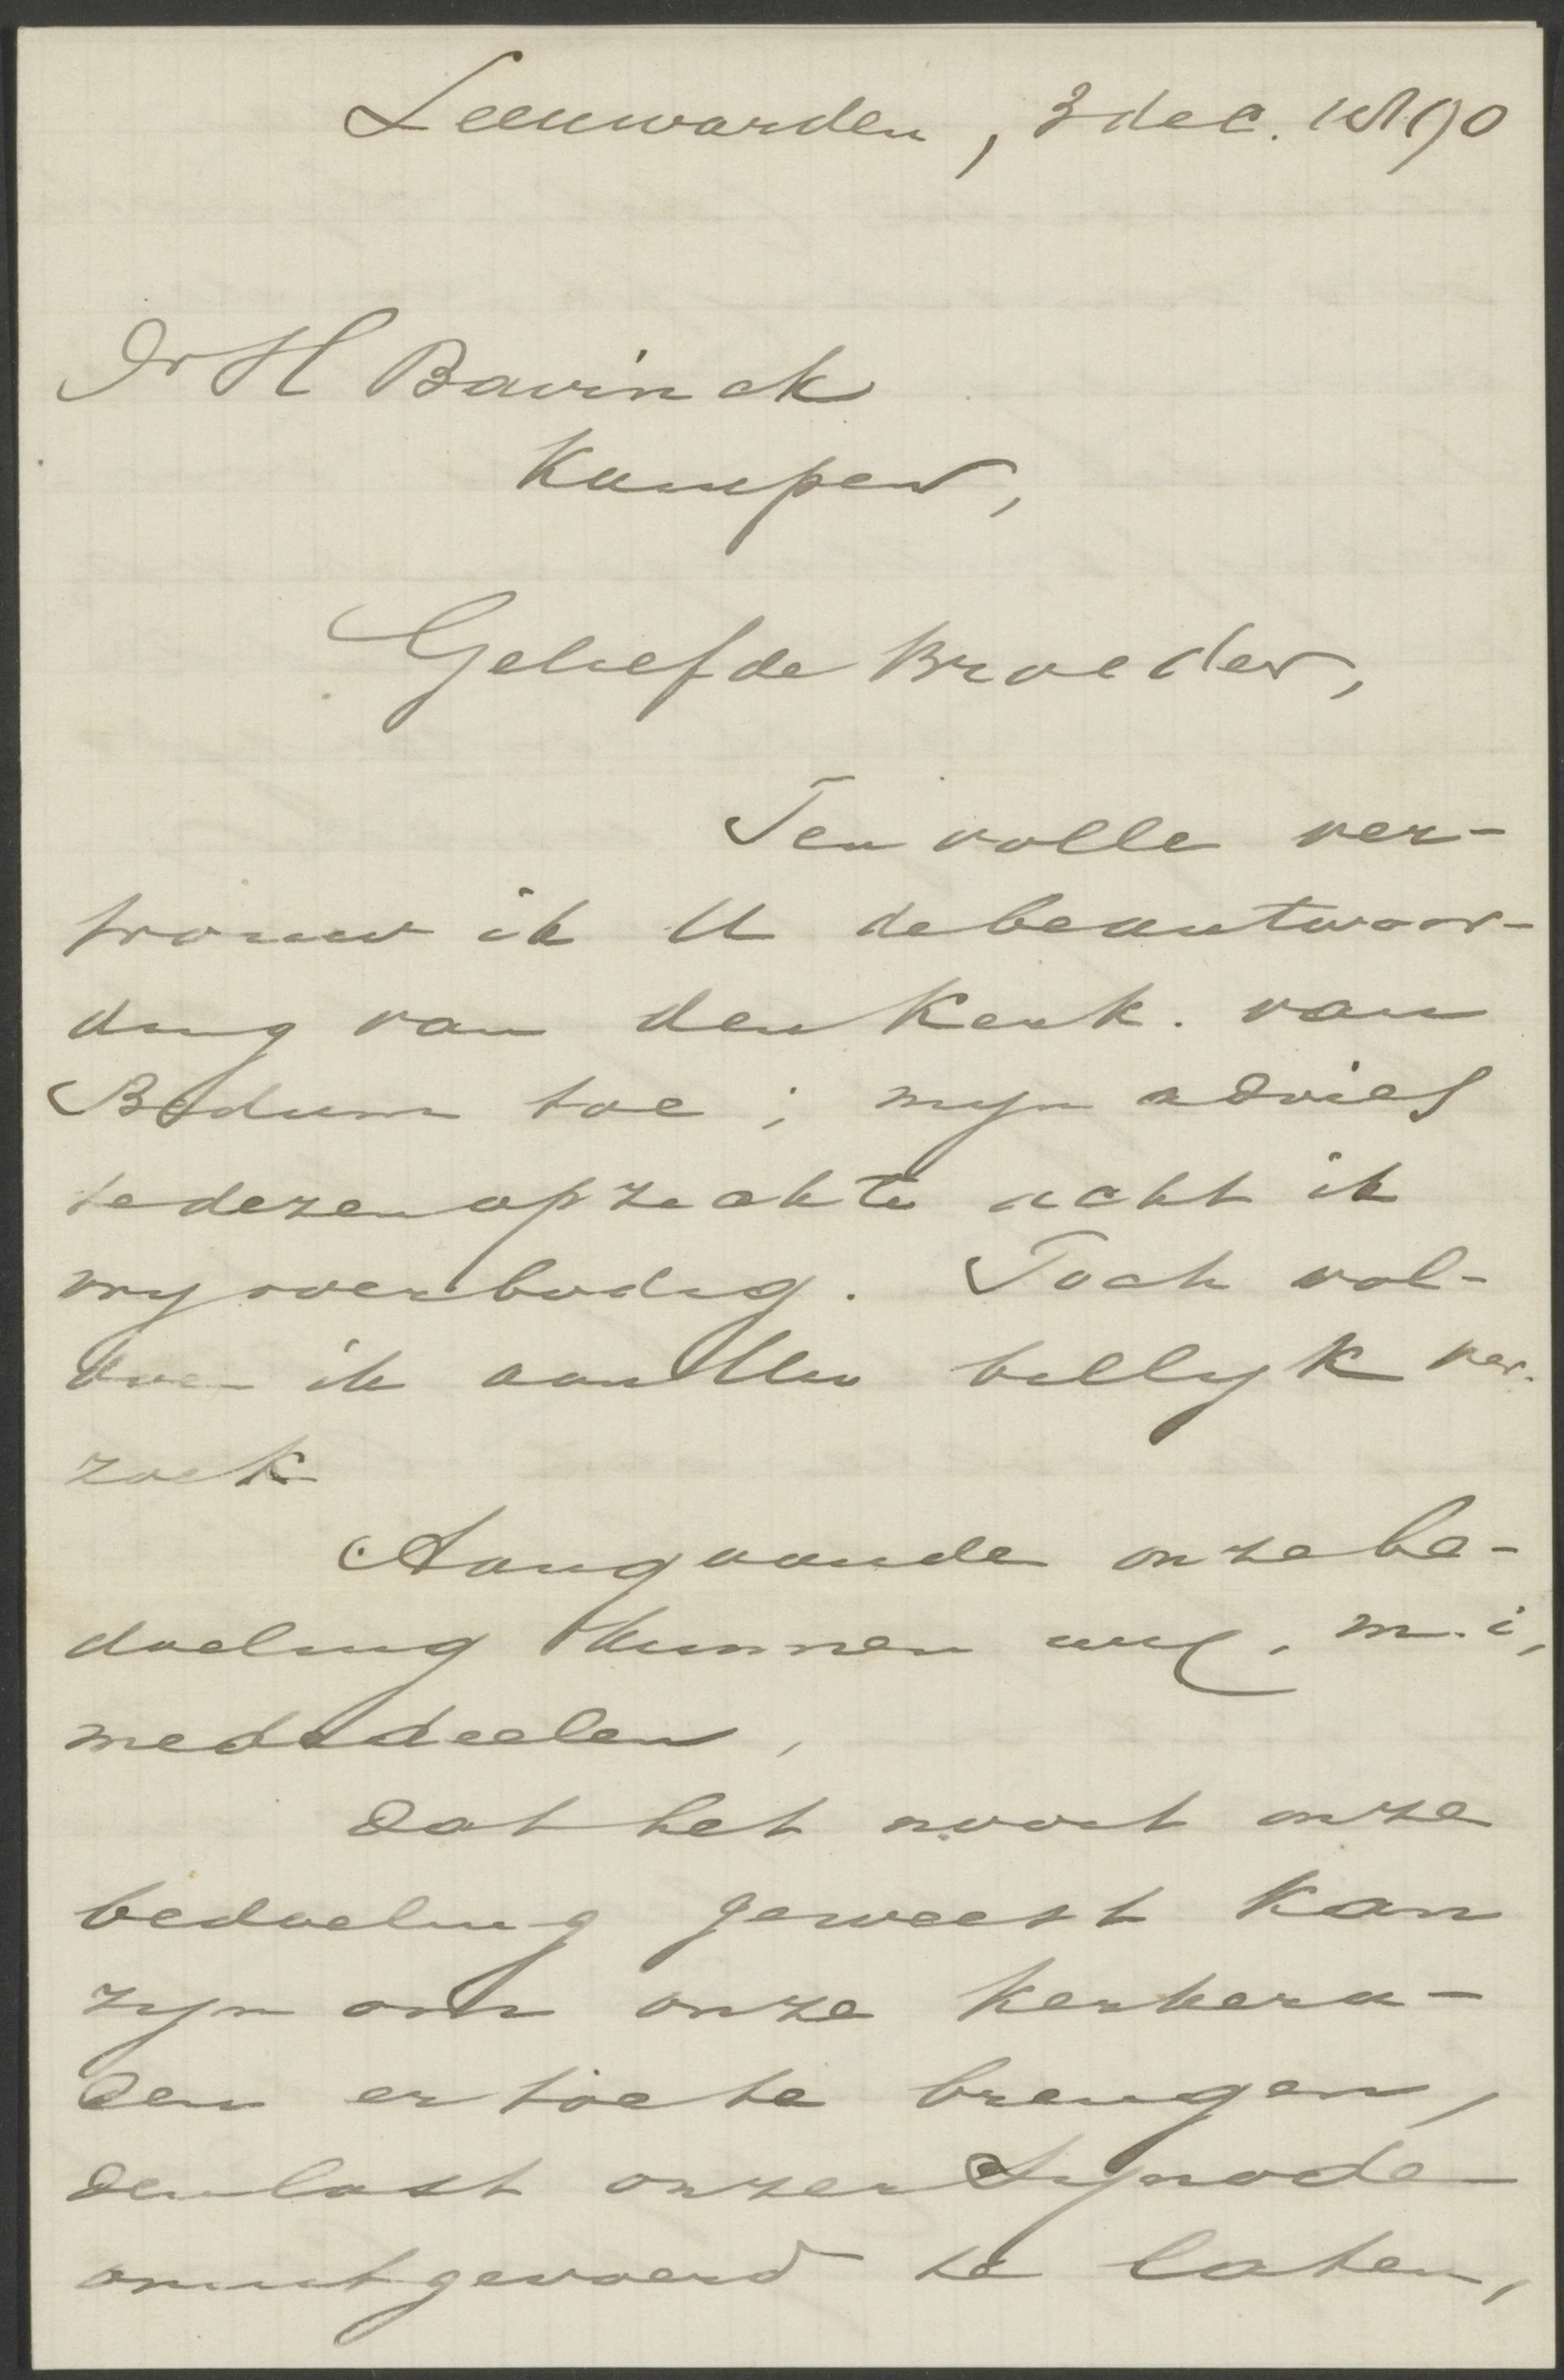 Leeuwarden, 3 dec. 1890
Dr H Bavinck
Kampen,
Geliefde Broeder,
Ten volle ver-
trouw ik U de beantwoor-
ding van den Kerk. van
Bedum toe; mijn advies
te dezen opzichte acht ik
vrij overbodig. Toch vol-
doe ik aan Uw billijk ver-
zoek
Aangaande onze be-
doeling kunnen we, m.i,
mededeelen,
dat het nooit onze
bedoeling geweest kan
zijn om onze kerkera-
den er toe te brengen,
den last onzer Synode
onuitgevoerd te laten,